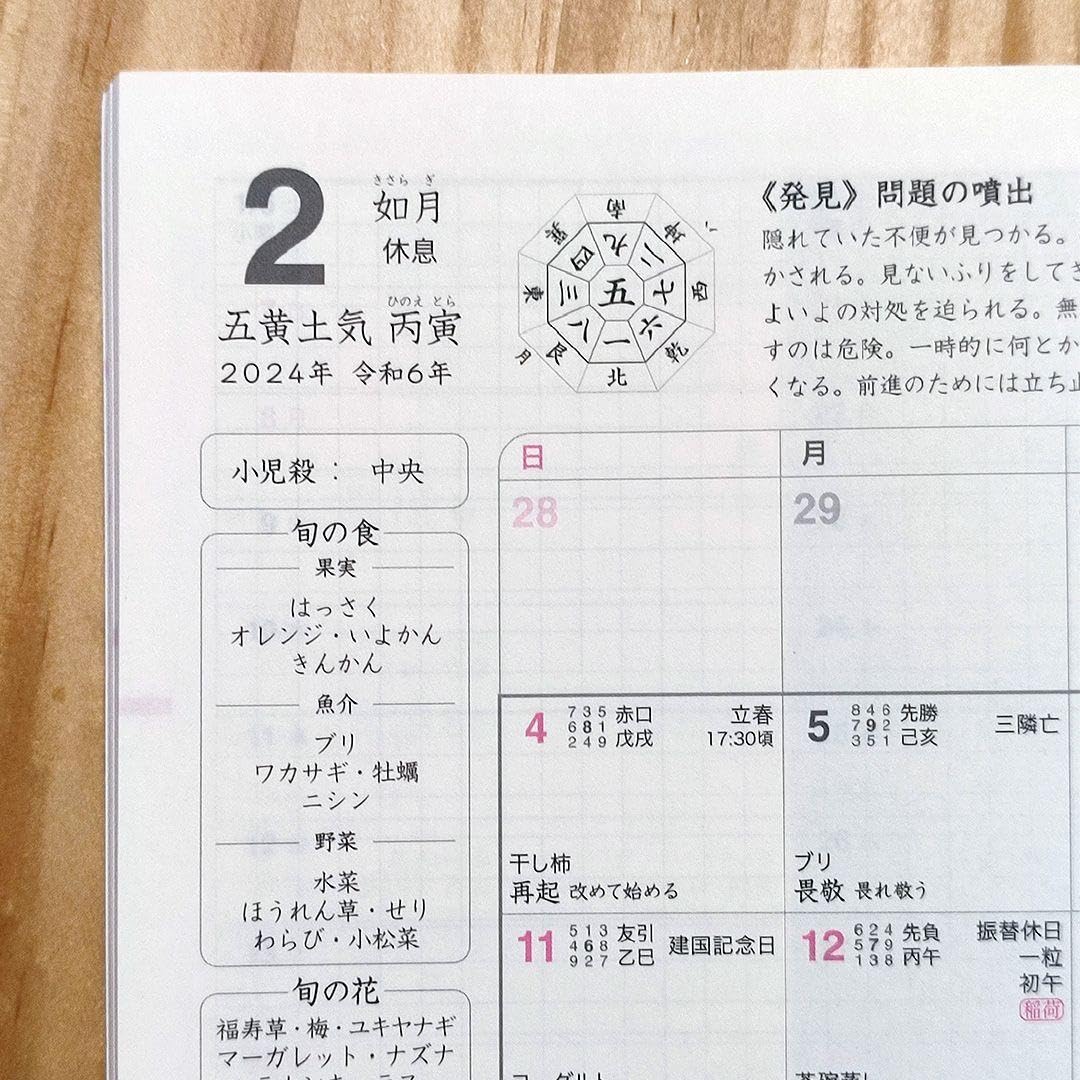 2
きさら ぎ
如月
休息
ひのえ とら
五黄土気 丙寅
2024年 令和6年
南
巽 坤
九
四 二
東 三 五 七 西
八 六
一
月 艮 乾
北
《発見》問題の噴出
隠れていた不便が見つかる。
かされる。見ないふりをしてき
よいよの対処を迫られる。無
すのは危険。一時的に何とか
くなる。前進のためには立ち止
小児殺: 中央
旬の食
果実
はっさく
オレンジ・いよかん
きんかん
魚介
ブリ
ワカサギ・牡蠣
ニシン
野菜
水菜
ほうれん草・せり
わらび・小松菜
旬の花
福寿草・梅・ユキヤナギ
マーガレット・ナズナ
日 月
28 29
4
7 3 5
6 8 1
2 4 9
赤口
戊戌
立春
17:30頃
干し柿
再起 改めて始める
5
8 4 6
7 9 2
3 5 1
先勝
己亥
三隣亡
ブリ
畏敬 畏れ敬う
11
5 1 3
4 6 8
9 2 7
友引
乙巳
建国記念日
ヨーグルト
12
6 2 4
5 7 9
1 3 8
先負
丙午
振替休日
一粒
初午
稲荷
茶碗蒸し